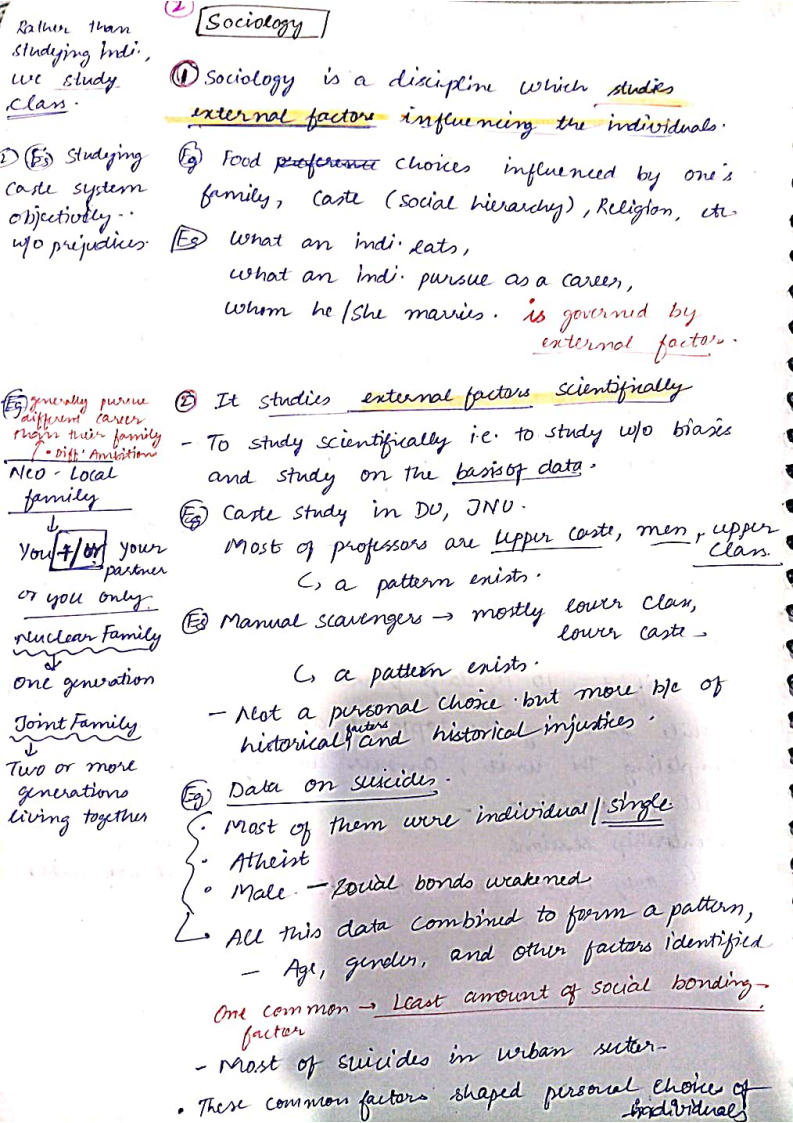 2
Sociology
Rather than
studying Indi.,
we study
class.
① Sociology is a discipline which studies
external factors influencing the individuals.
Eg Studying
caste system
objectively..
w/o prejudices.
Eg Food preference choices influenced by one's
family, caste (social hierarchy), Religion, etc.
Eg What an indi. eats,
what an indi. pursue as a career,
whom he/she marries. is governed by
external factor.
Eg generally pursue
different career
than their family
• Diff. Ambition
Neo-Local
family
↓
You +/or your
partner
or you only.
Nuclear Family
↓
One generation
Joint Family
↓
Two or more
generations
living together
② It studies external factors scientifically
- To study scientifically i.e. to study w/o biases
and study on the basis of data.
Eg Caste study in DU, JNU.
Most of professors are upper caste, men, upper
class.
↳ a pattern exists.
Eg Manual scavengers → mostly lower class,
lower caste →
↳ a pattern exists.
- Not a personal choice but more b/c of
historical factors and historical injustices.
Eg Data on suicides.
• Most of them were individual/single
• Atheist
• Male - Social bonds weakened
↳ All this data combined to form a pattern,
- Age, gender, and other factors identified
One common → Least amount of social bonding.
factor
- Most of suicides in urban sector-
• These common factors shaped personal choice of
individuals